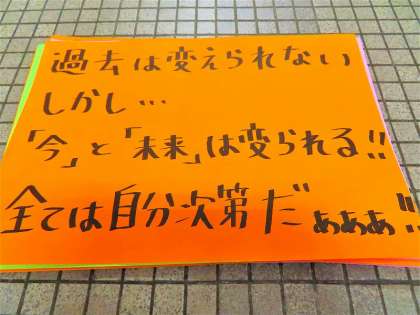 過去は変えられない
しかし…
「今」と「未来」は変られる!!
全ては自分次第だぁぁぁ!!